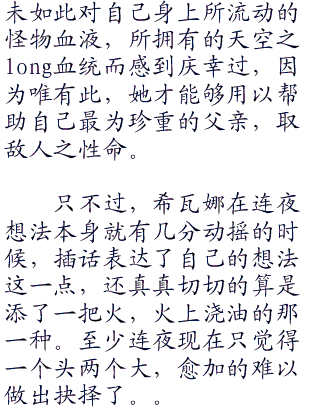 未如此对自己身上所流动的
怪物血液，所拥有的天空之
long血统而感到庆幸过，因
为唯有此，她才能够用以帮
助自己最为珍重的父亲，取
敌人之性命。
只不过，希瓦娜在连夜
想法本身就有几分动摇的时
候，插话表达了自己的想法
这一点，还真真切切的算是
添了一把火，火上浇油的那
一种。至少连夜现在只觉得
一个头两个大，愈加的难以
做出抉择了。。